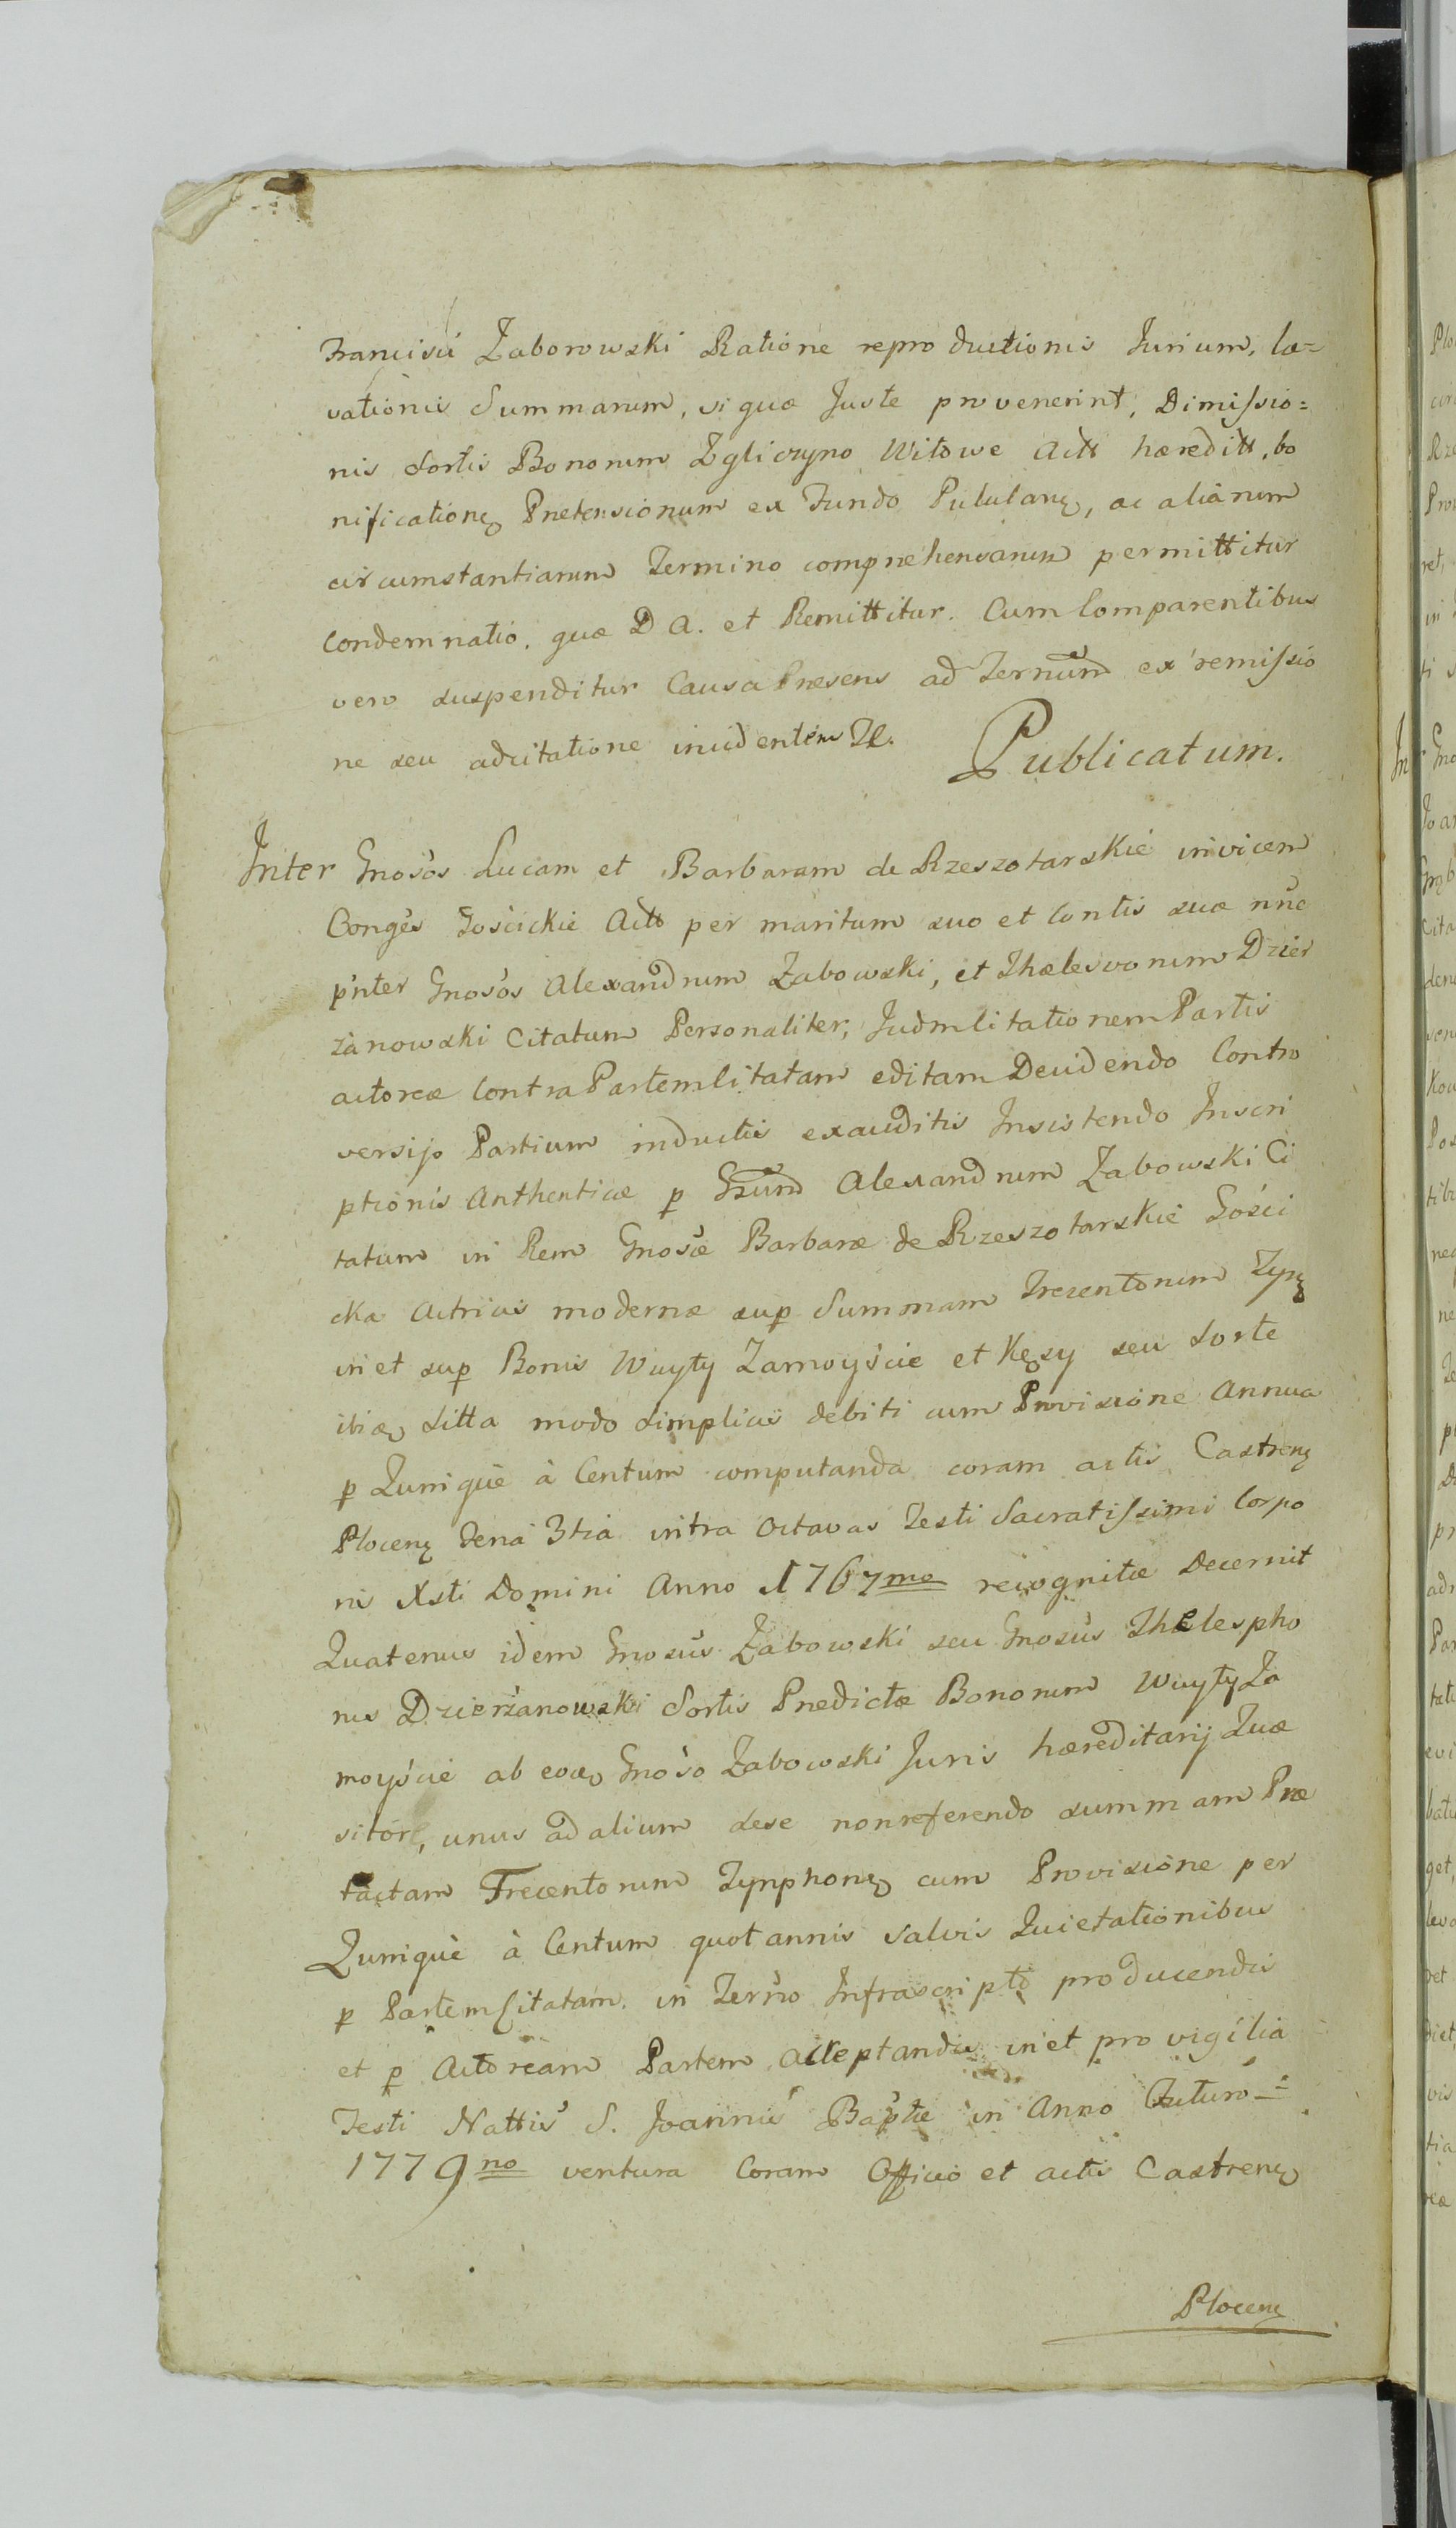 Francisci Zaborowski Ratione reproductionis Jurium, le=
vationis Summarum, si quæ Juste provenerint, Dimissio=
nis Sortis Bonorum Zgliczyno Witowe Actt hæreditt, bo
nificationę Prætensionum ex Fundo Pululanę, ac aliarum
circumstantiarum Termino comprehensarum permittitur
Condemnatio, quæ D A. et Remittitur. Cum Comparentibus
vero suspenditur Causa Præsens ad Ternum ex remissio
ne seu adcitatione incidentem
Publicatum.
Inter Gnosos Lucam et Barbaram de Rzeszotarskie invicem
Conges Gościckie Actt per maritum suo et Contis suæ nnc
pnter Gnosos Alexandrum Zabowski, et Thælesvorum Dzier
żanowski Citatum Personaliter, Judm Citationem Partis
actoreæ Contra Partem Citatam editam Decidendo Contro
versijs Partium inductis exauditis Insistendo Inscri
ptionis Authenticæ p Gsum Alexandrum Zabowski Ci
tatum in Rem Gnosæ Barbaræ de Rzeszotarskie Gości
cka Actricis modernæ sup Summam Trecentorum Tynę
in et sup Bonis Wuyty Zamoyście et Kęsy seu Sorte
ibię Sitta modo Simplicis debiti cum Provisione Annua
p Quinque à Centum computanda coram actis Castrenę
Plocenę Feria 3tia intra Octavas Festi Sacratissimi Corpo
ris Xsti Domini Anno 1767mo recognitæ Decernit
Quatenus idem Gnosus Zabowski seu Gnosus Thelespho
rus Dzierżanowski Sortis Prædictæ Bonorum Wuyty Za
moyście ab eoę Gnoso Zabowski Juris hæreditarij Quæ
sitor, unus ad alium sese non referendo summam Præ
tactam Trecentorum Tynphonę cum Provisione per
Quinque à Centum quotannis salvis Quietationibus
p Partem Citatam in Terno Infrascripto producendis
et p Actoream Partem Acceptandis in et pro vigilia
Festi Nattis S. Joannis Baptæ in Anno Futuro =
1779no ventura Coram Officio et actis Castrenę
Plocenę